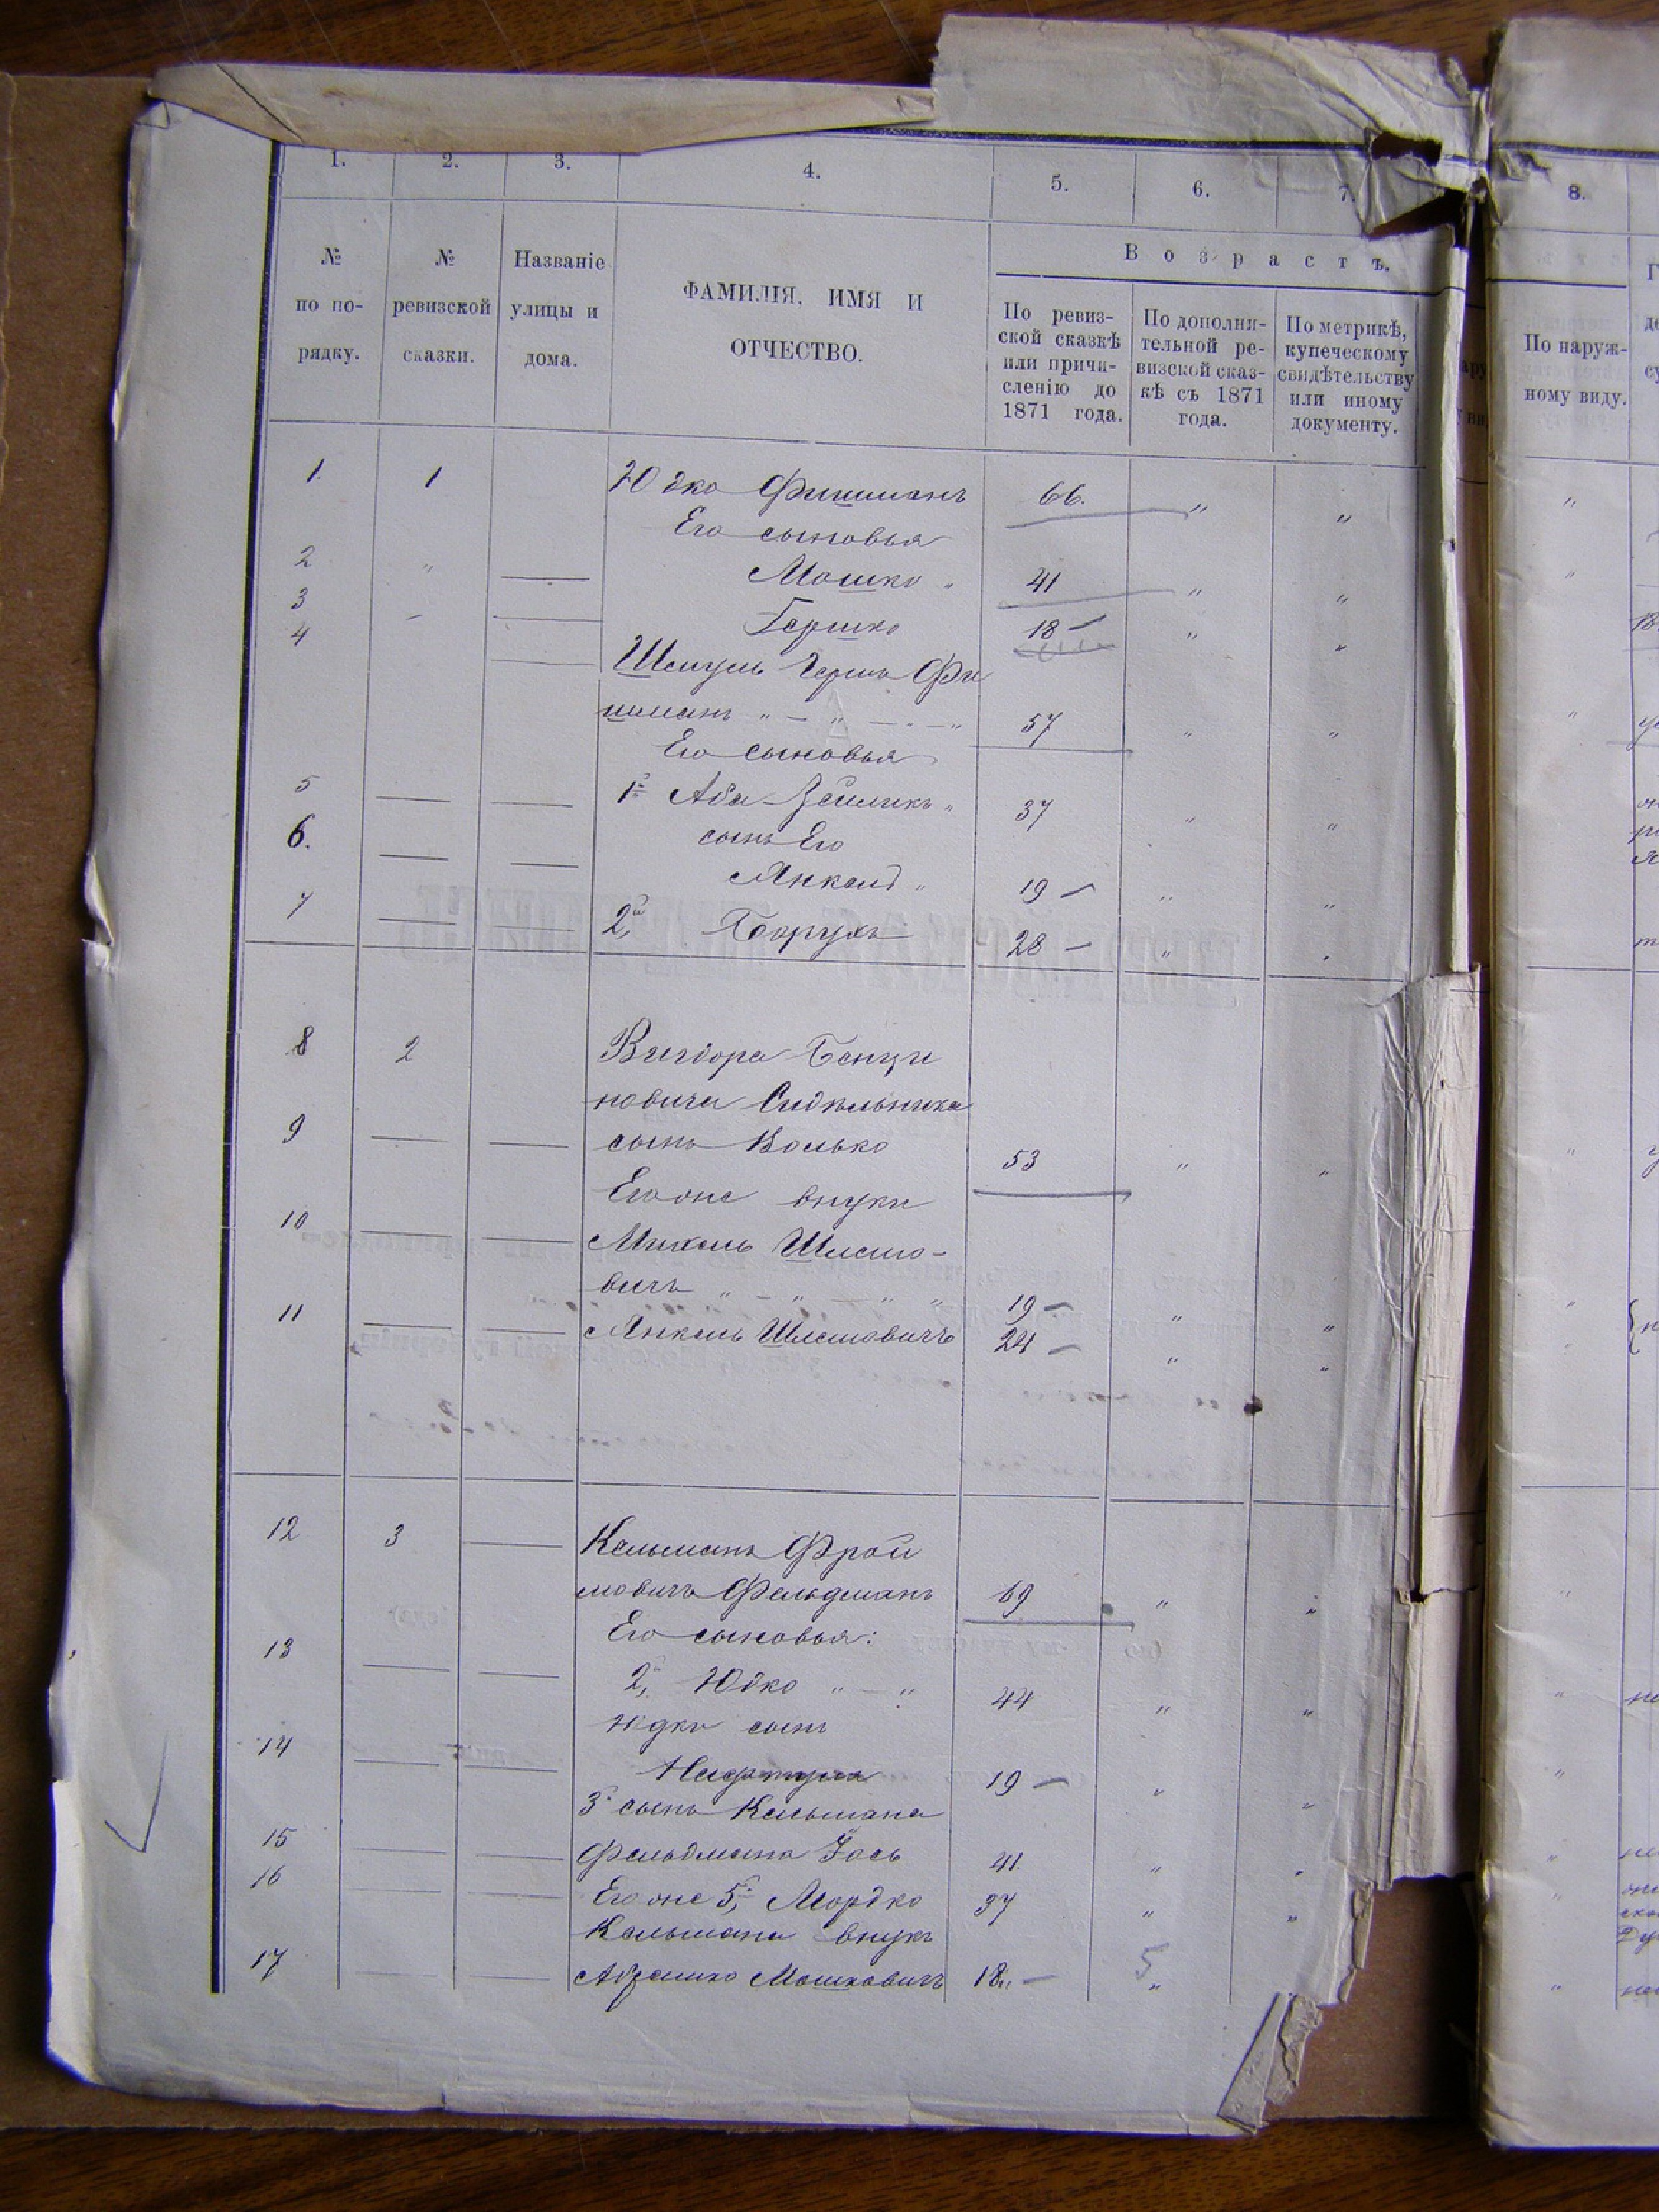 1. 2. 3. 4. 5. 6. 7. 8.
В о з р а с т ъ.
№ по по-рядку.
№ ревизской сказки.
Названіе улицы и дома.
ФАМИЛІЯ, ИМЯ И
ОТЧЕСТВО.
По ревиз-
ской сказкѣ
или причи-
сленію до
1871 года.
По дополни-
тельной ре-
визской сказ-
кѣ съ 1871
года.
По метрикѣ,
купеческому
свидѣтельству
или иному
документу.
По наруж-
ному виду.
1. 1 Юдко Фишманъ 66. " " "
Его сыновья
2 " — Мошко " 41 " " "
3 " — Гершко 18 — " "
4 — Шмуль Герш Фи
шманъ " — " — " — " 57 " " "
Его сыновья
5 — — 1й Аба-Зейликъ " 37 " "
сынъ Его
6. — — Янкель " 19 — " "
7 — — 2й Борухъ 28 — " "
8 2 Вигдора Бенци
новича Сидѣльника
9 — — сынъ Волько 53 " " "
Его же внуки
10 — — Михель Шлемо-
вичъ " — " — " " 19 — " " "
11 — — Янкель Шлемовичъ 24 — " " "
12 3 — Кельманъ Фрои
мовичъ Фельдманъ 69 " " "
Его сыновья:
13 — — 2й Юдко " — " 44 " " "
Юдки сынъ
14 — — Нафтула 19 — " " "
3й сынъ Кельмана
15 — — Фельдмана Іось 41. " " "
16 — — Его же 5й Мордко 37 " " "
Кельмана внукъ
17 — — Абрамко Мошковичъ 18 " — 5 " "